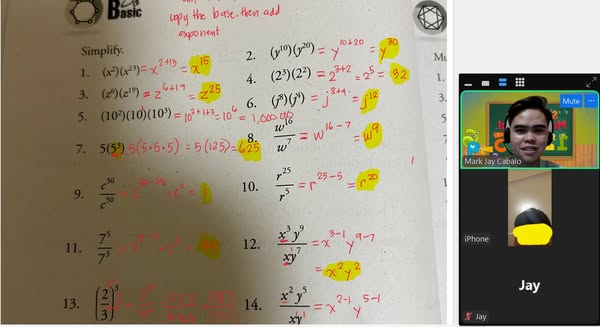 Basic
copy the base, then add
exponent
Simplify.
1. (x²)(x¹³) = x²⁺¹³ = x¹⁵
2. (y¹⁰)(y²⁰) = y¹⁰⁺²⁰ = y³⁰
3. (z⁶)(z¹⁹) = z⁶⁺¹⁹ = z²⁵
4. (2³)(2²) = 2³⁺² = 2⁵ = 32
5. (10²)(10)(10³) = 10²⁺¹⁺³ = 10⁶ = 1,000,000
6. (j⁸)(j⁴) = j⁸⁺⁴ = j¹²
7. 5(5³) 5(5·5·5) = 5(125) = 625
8. w¹⁶/w⁷ = w¹⁶⁻⁷ = w⁹
9. c⁵⁰/c⁵⁰ = 1
10. r²⁵/r⁵ = r²⁵⁻⁵ = r²⁰
11. 7⁵/7³
12. x³y⁹/xy⁷ = x³⁻¹ y⁹⁻⁷
= x²y²
13. (2/3)³
14. x²y⁵/xy = x²⁻¹ y⁵⁻¹
Mu
1.
3.
5.
Mute
Mark Jay Cabalo
iPhone
Jay
Jay